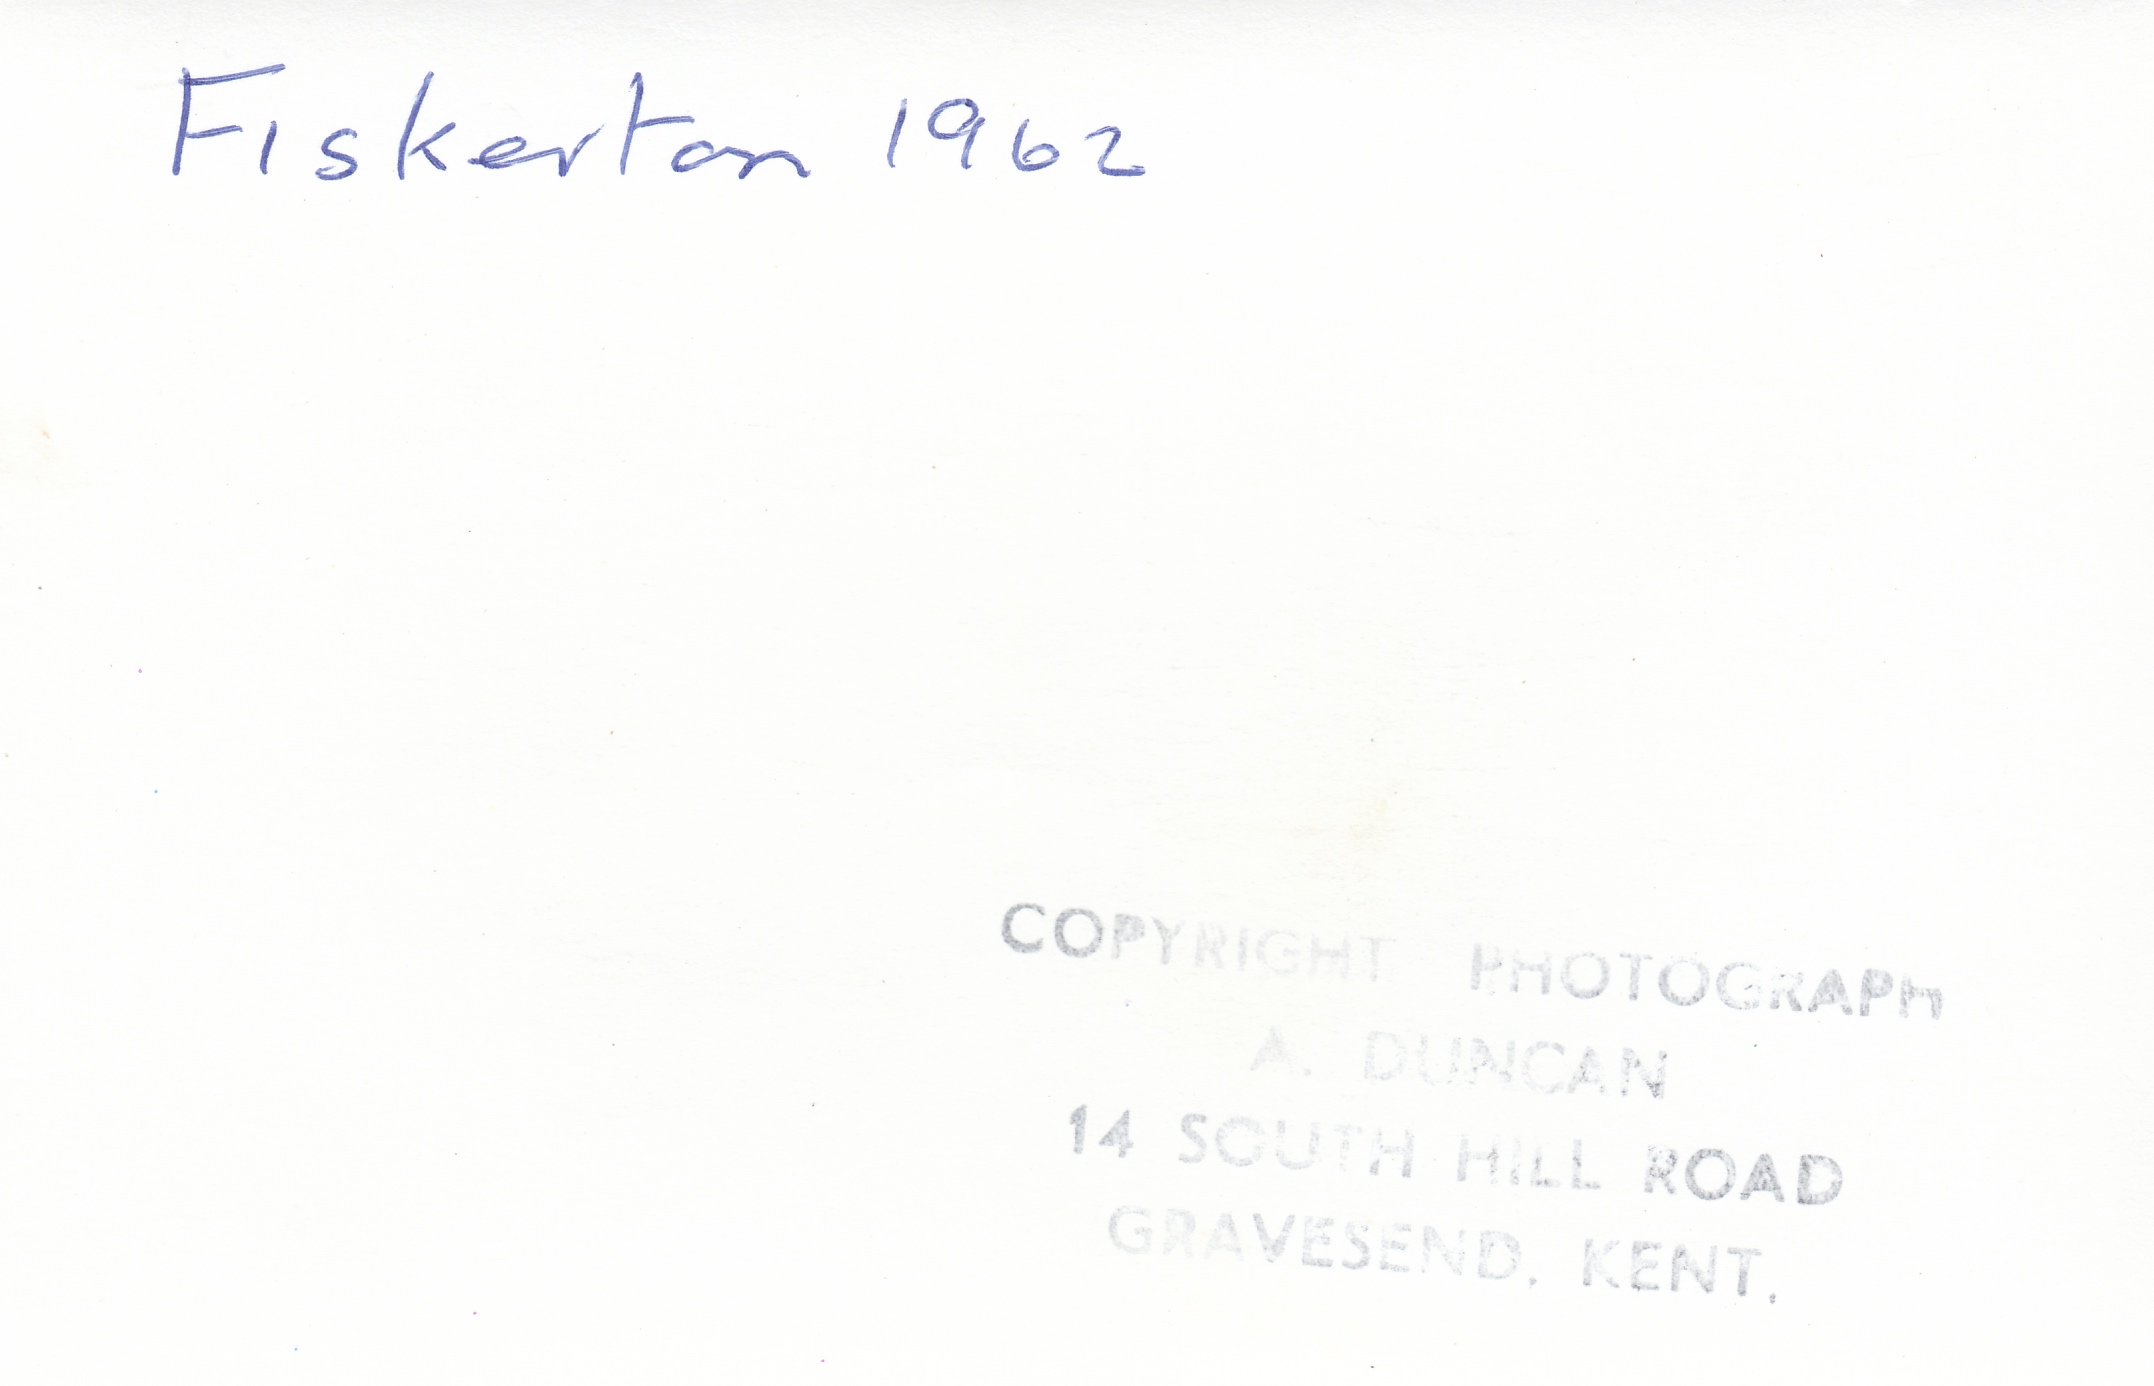 Fiskerton 1962
COPYRIGHT PHOTOGRAPH
A. DUNCAN
14 SOUTH HILL ROAD
GRAVESEND, KENT.